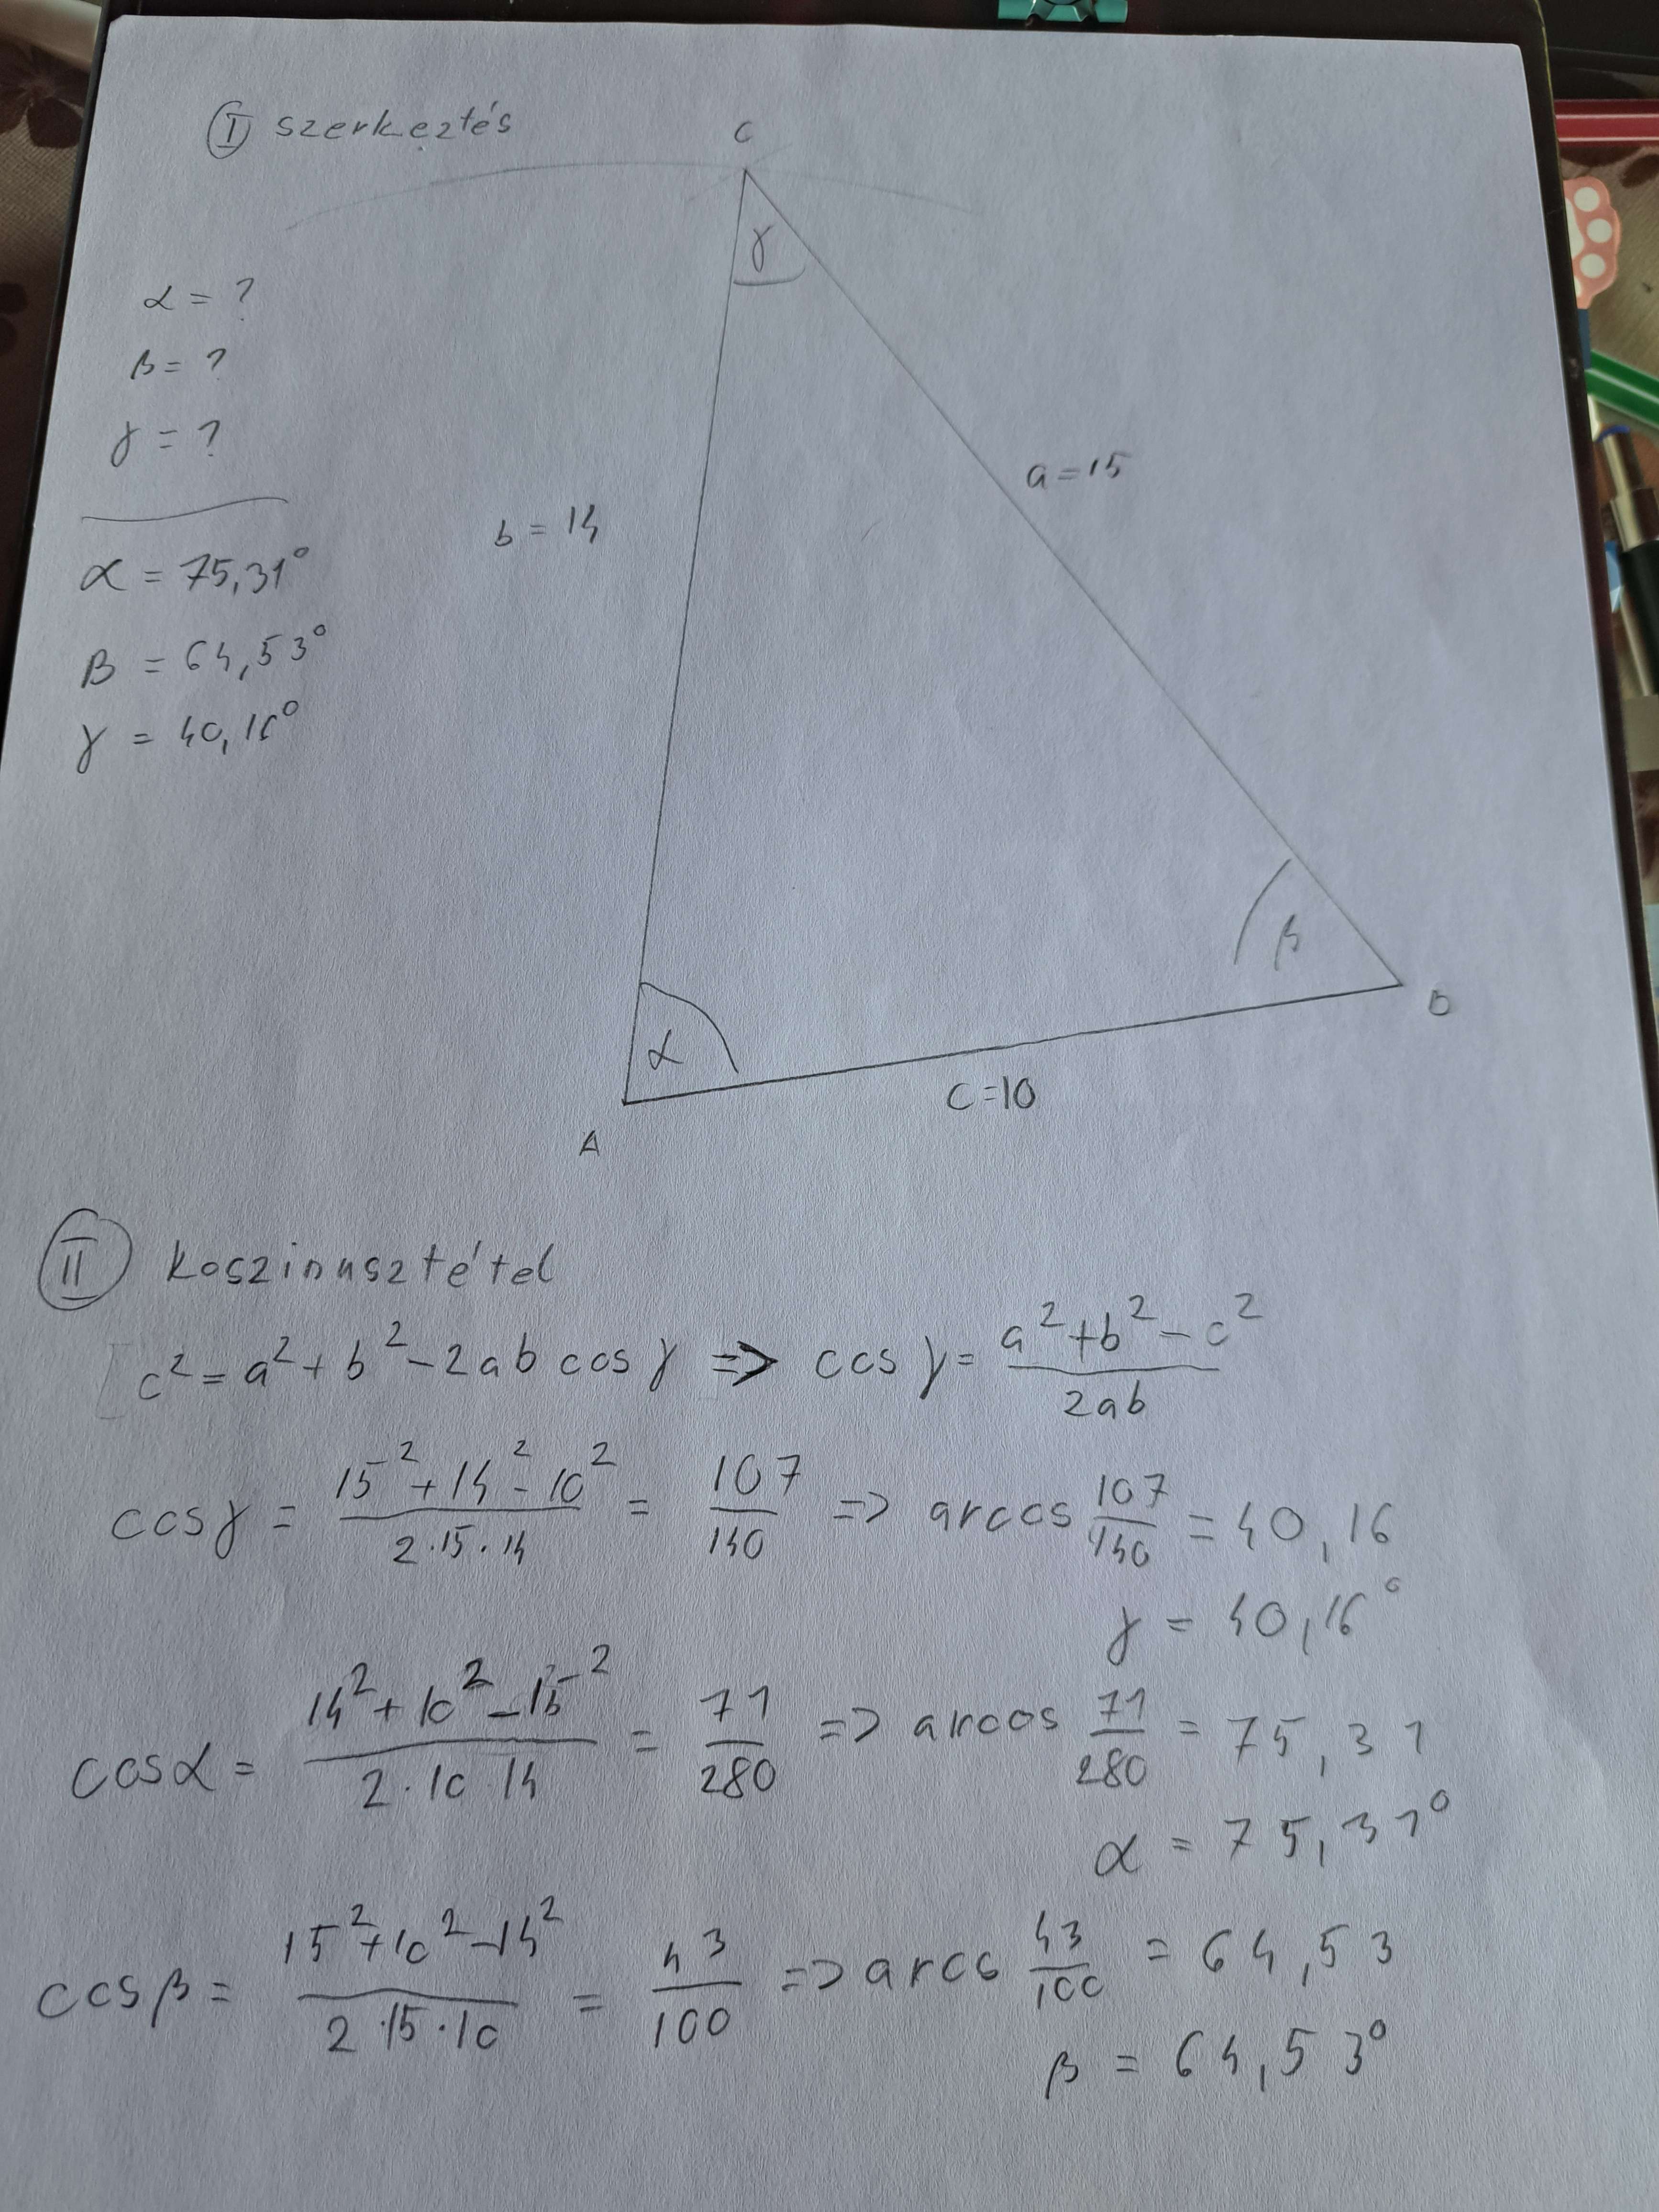 I szerkeztés
C
γ
α = ?
β = ?
γ = ?
a = 15
b = 14
α = 75,31°
β = 64,53°
γ = 40,16°
β
B
α
c = 10
A
II koszinusztétel
c² = a² + b² - 2ab cos γ => cos γ = (a² + b² - c²)/(2ab)
cos γ = (15² + 14² - 10²)/(2·15·14) = 107/140 => arccos 107/140 = 40,16
γ = 40,16°
cos α = (14² + 10² - 15²)/(2·10·14) = 71/280 => arcos 71/280 = 75,31
α = 75,31°
cos β = (15² + 10² - 14²)/(2·15·10) = 43/100 => arcs 43/100 = 64,53
β = 64,53°